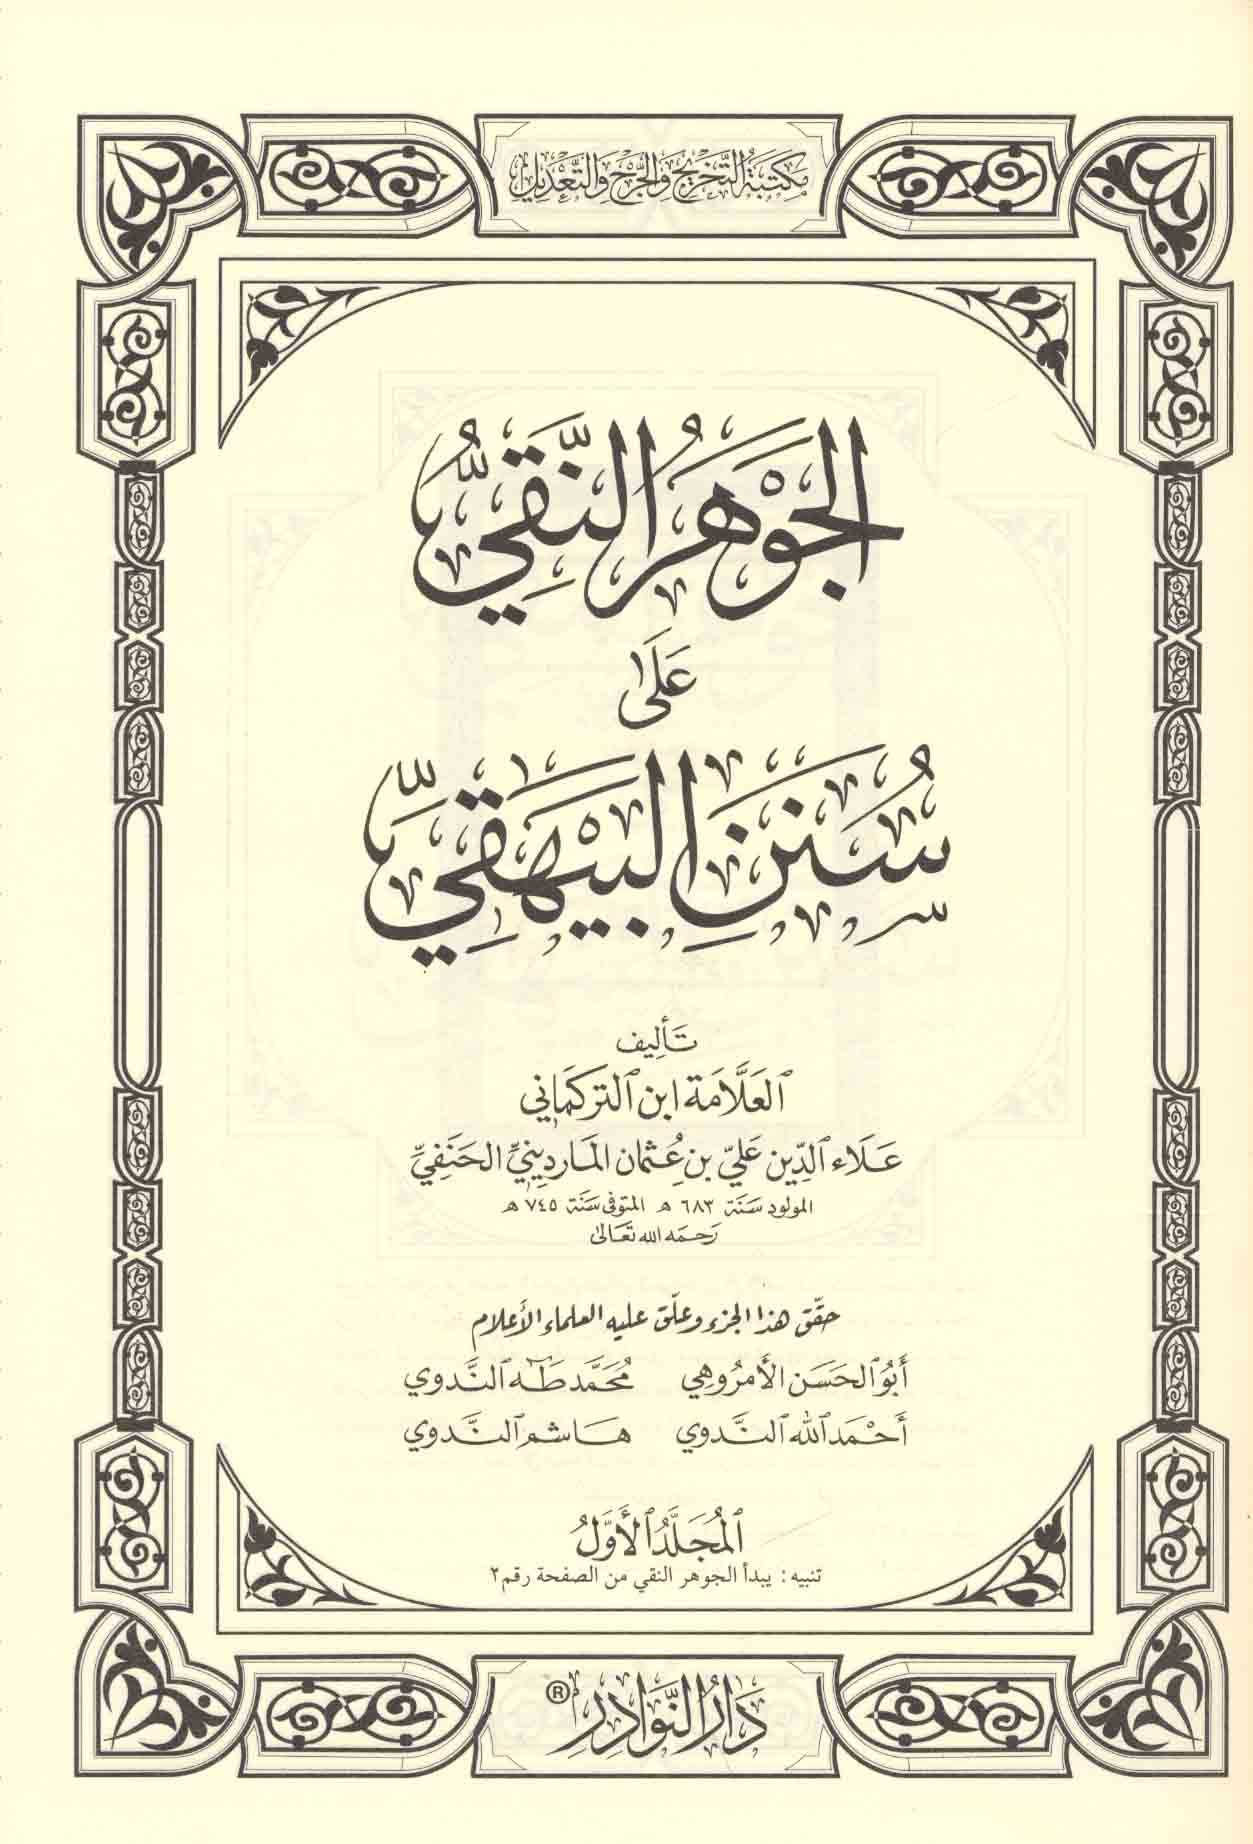 مكتبة التخريج والجرح والتعديل
الجَوْهَرُ النَّقِيُّ
عَلَى
سُنَنِ البَيْهَقِيِّ
تَأليف
العَلَّامَة ابن التركماني
عَلَاء الدِّين عَليّ بن عُثمان المارديني الحَنَفيِّ
المولود سَنَة ٦٨٣ هـ المتوفى سَنَة ٧٤٥ هـ
رَحمَه الله تعَالى
حقّق هذا الجزء وعلّق عليه العلماء الأعلام
أبُو الحَسَن الأمرُوهي مُحَمَّد طَه النَّدوي
أحْمَد الله النَّدوي هَاشم النَّدوي
المُجَلَّدُ الأَوَّلُ
تنبيه: يبدأ الجوهر النقي من الصفحة رقم ٢
دَارُ النَّوَادِرِ ®